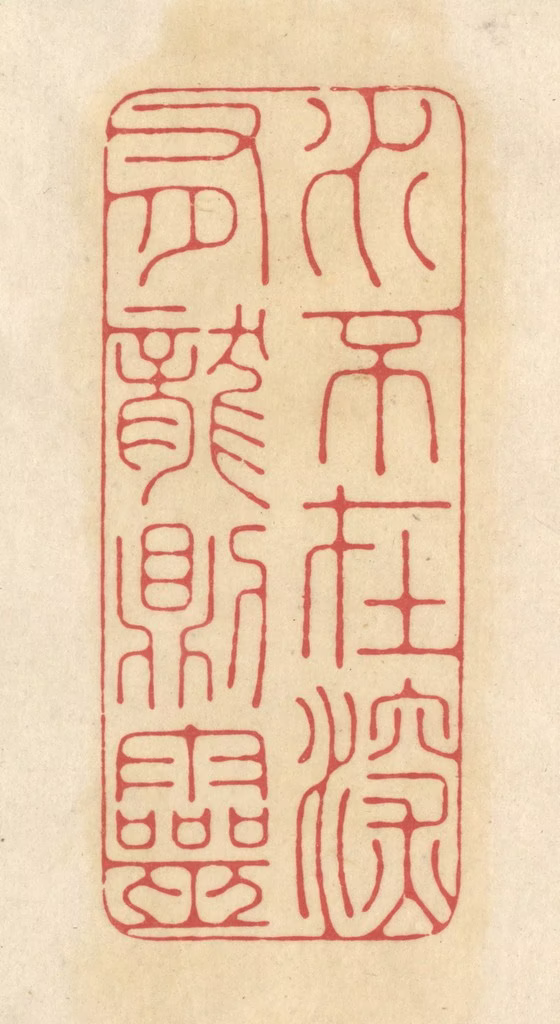 水不在深
有龍則靈